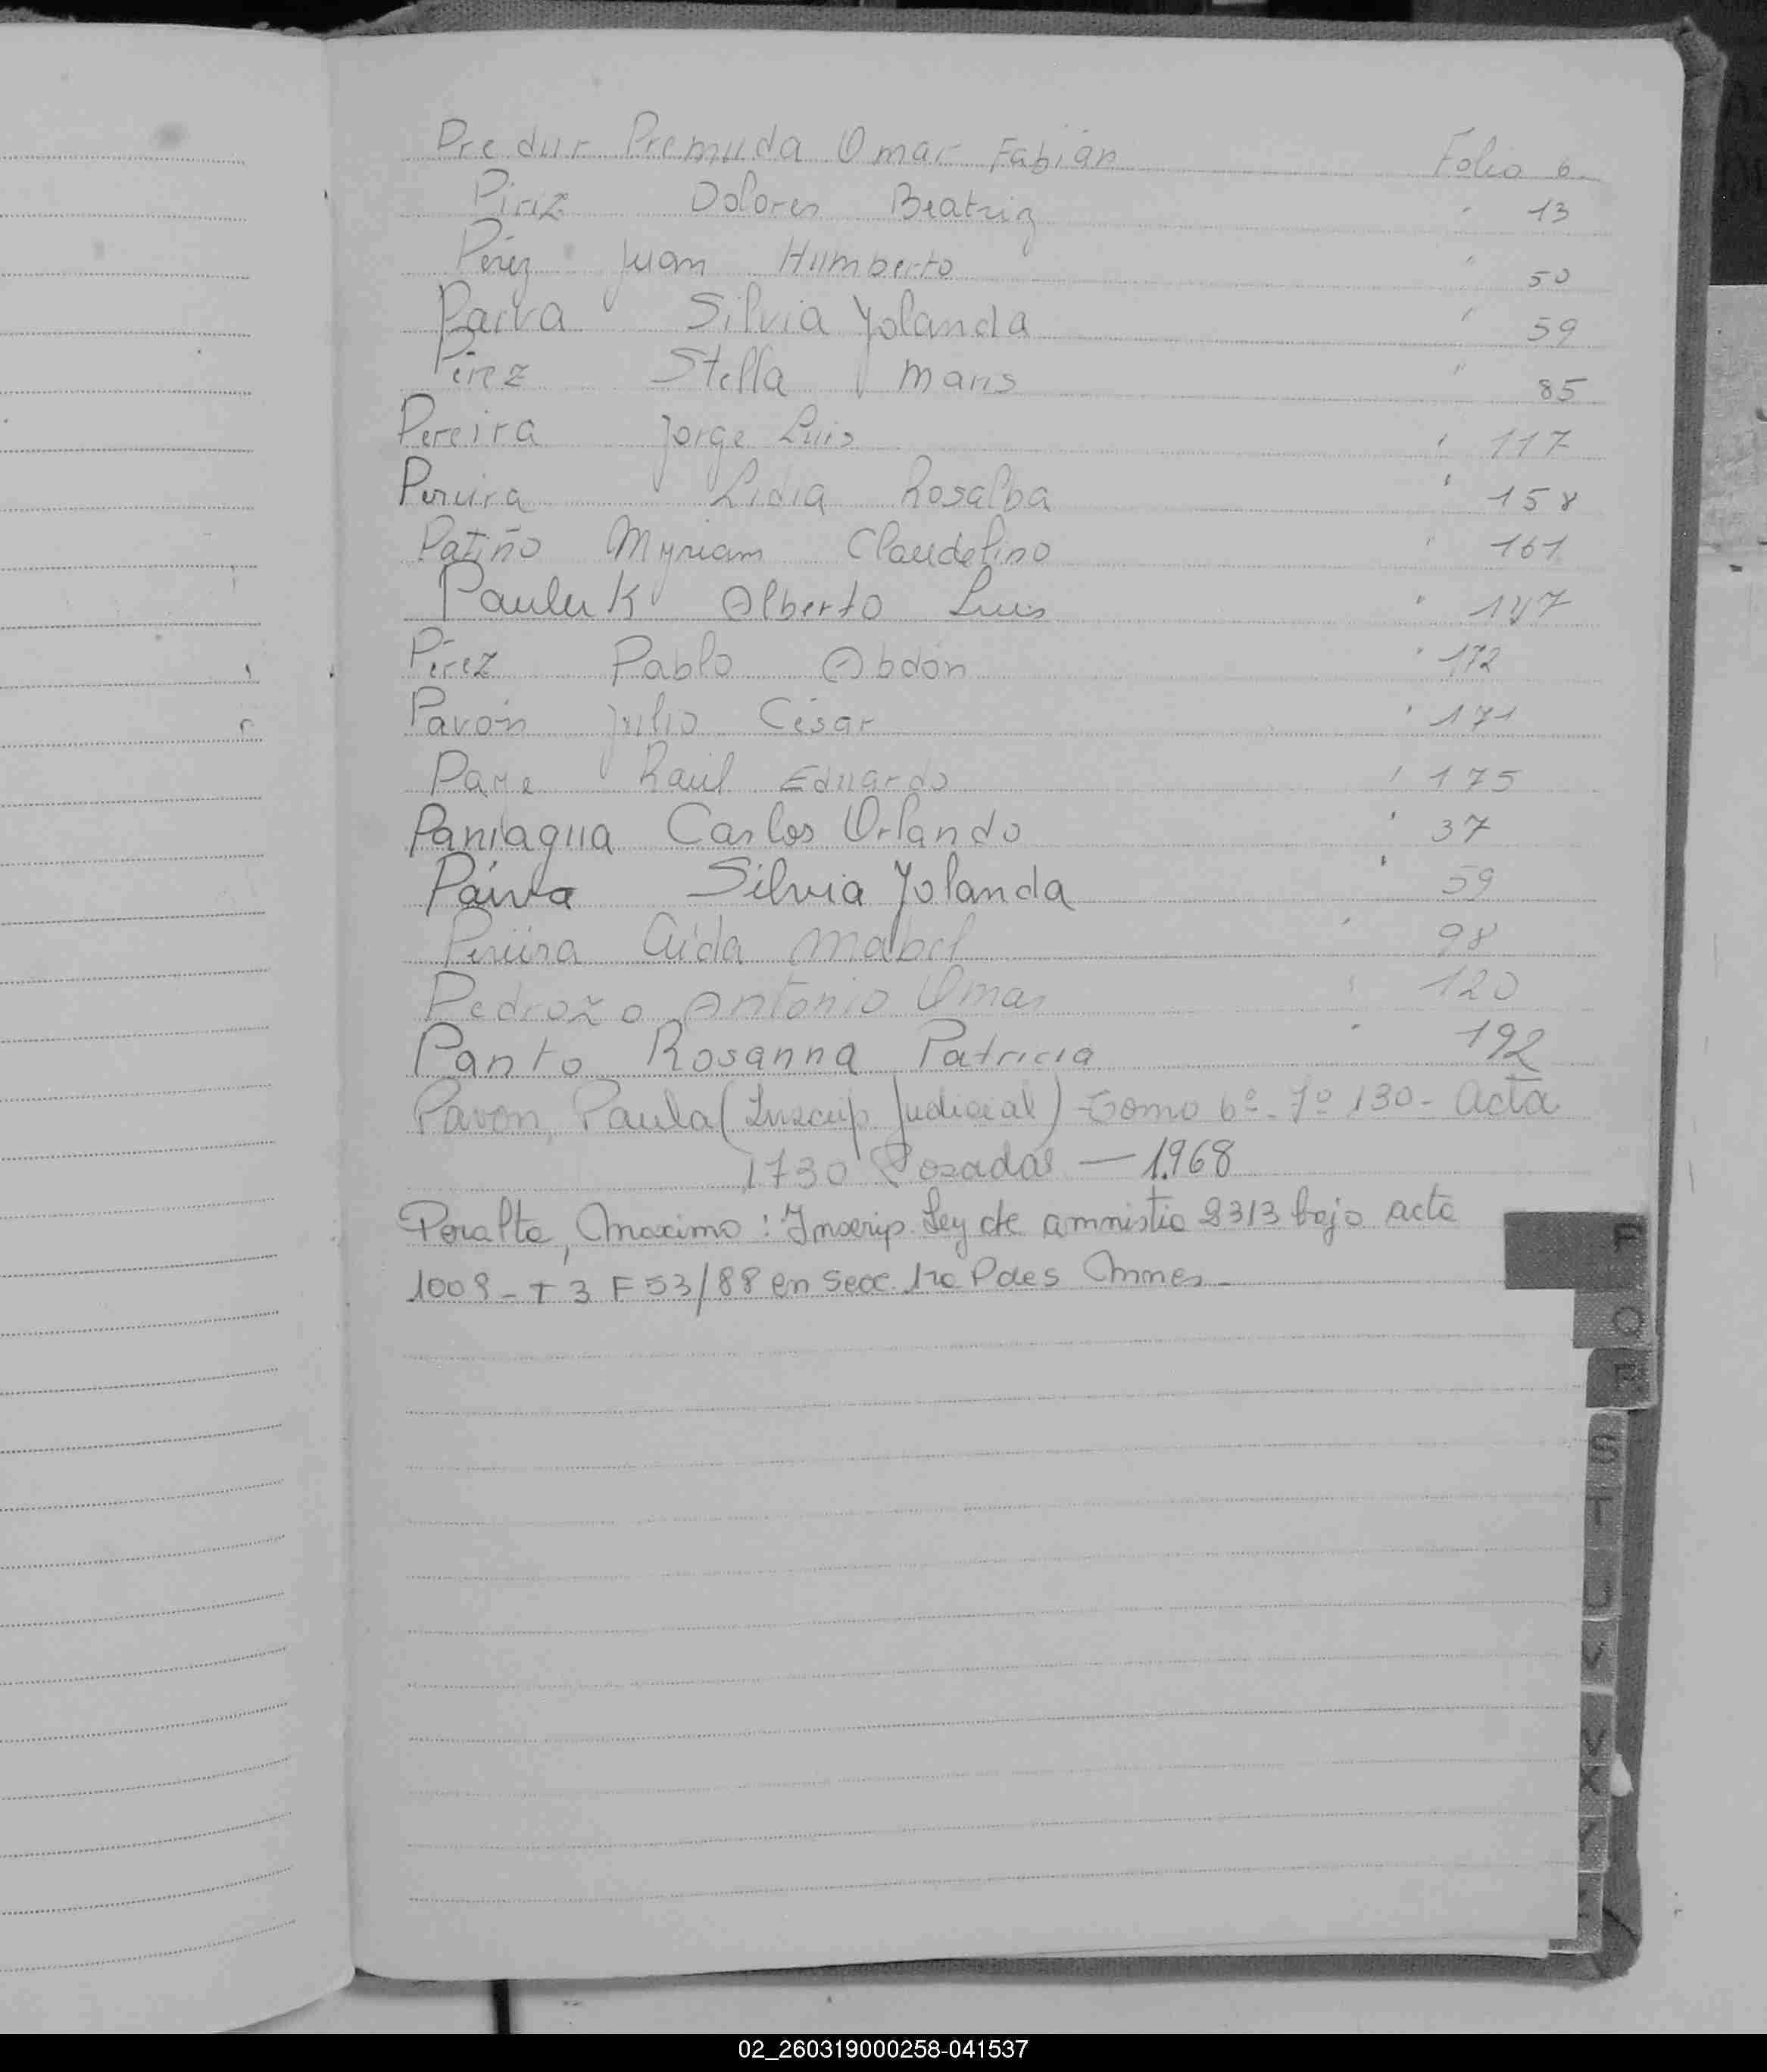 Predur Premuda Omar Fabián Folio 6
Piriz Dolores Beatriz " 13
Pérez Juan Humberto " 50
Paiva Silvia Yolanda " 59
Pérez Stella Maris " 85
Pereira Jorge Luis " 117
Pereira Lidia Rosalba " 158
Patiño Myriam Claudelino " 161
Pauluk Alberto Luis " 147
Pérez Pablo Abdón " 172
Pavón Julio César " 171
Paye Raúl Eduardo " 175
Paniagua Carlos Orlando " 37
Paiva Silvia Yolanda " 59
Pereira Aída Mabel " 98
Pedrozo Antonio Omar " 120
Panto Rosanna Patricia " 192
Pavon, Paula (Inscrip. Judicial) - Tomo 6º - Fº 130 - Acta
1730 Posadas — 1.968
Peralta, Maximo : Inscrip. Ley de amnistia 2313 bajo acta
1008 - T 3 F 53/88 en Secc. 1ra Pdas Mnes -
P
Q
R
S
T
U
V
X
02_260319000258-041537